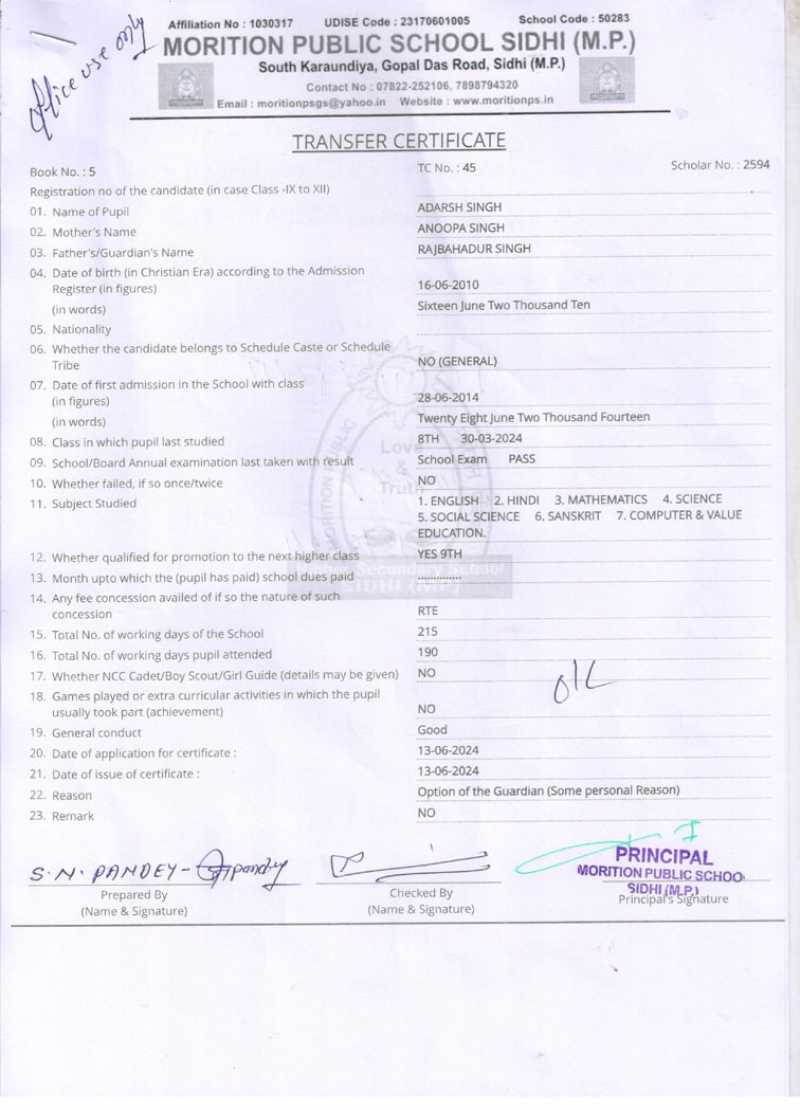 Office use only
Affiliation No : 1030317 UDISE Code : 23170601005 School Code : 50283
MORITION PUBLIC SCHOOL SIDHI (M.P.)
South Karaundiya, Gopal Das Road, Sidhi (M.P.)
Contact No : 07822-252106, 7898794320
Email : moritionpsgs@yahoo.in Website : www.moritionps.in
TRANSFER CERTIFICATE
Book No. : 5 TC No. : 45 Scholar No. : 2594
Registration no of the candidate (in case Class -IX to XII)
01. Name of Pupil ADARSH SINGH
02. Mother's Name ANOOPA SINGH
03. Father's/Guardian's Name RAJBAHADUR SINGH
04. Date of birth (in Christian Era) according to the Admission
Register (in figures) 16-06-2010
(in words) Sixteen June Two Thousand Ten
05. Nationality
06. Whether the candidate belongs to Schedule Caste or Schedule
Tribe NO (GENERAL)
07. Date of first admission in the School with class
(in figures) 28-06-2014
(in words) Twenty Eight June Two Thousand Fourteen
08. Class in which pupil last studied 8TH 30-03-2024
09. School/Board Annual examination last taken with result School Exam PASS
10. Whether failed, if so once/twice NO
11. Subject Studied 1. ENGLISH 2. HINDI 3. MATHEMATICS 4. SCIENCE
5. SOCIAL SCIENCE 6. SANSKRIT 7. COMPUTER & VALUE
EDUCATION.
12. Whether qualified for promotion to the next higher class YES 9TH
13. Month upto which the (pupil has paid) school dues paid ..............
14. Any fee concession availed of if so the nature of such
concession RTE
15. Total No. of working days of the School 215
16. Total No. of working days pupil attended 190
17. Whether NCC Cadet/Boy Scout/Girl Guide (details may be given) NO
18. Games played or extra curricular activities in which the pupil
usually took part (achievement) NO
19. General conduct Good
20. Date of application for certificate : 13-06-2024
21. Date of issue of certificate : 13-06-2024
22. Reason Option of the Guardian (Some personal Reason)
23. Remark NO
MORITION PUBLIC
Love
&
Truth
Higher Secondary School
SIDHI (MP)
S.N. PANDEY -
Prepared By
(Name & Signature)
Checked By
(Name & Signature)
PRINCIPAL
MORITION PUBLIC SCHOO
SIDHI (M.P.)
Principal's Signature